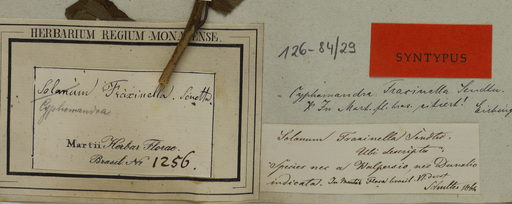 HERBARIUM REGIUM MONACENSE.
Solanum Fraxinella. Sendtn.
Cyphomandra
Martii Herbar. Florae
Brasil. No 1256.
126-84/29
SYNTYPUS
Cyphomandra Fraxinella Sendtn.
In Mart. fl. bras.
Solanum Fraxinella Sendtn.
descripta
Species nec a Walpersio, nec Dunalio
indicata. In Flora brasil. VI.